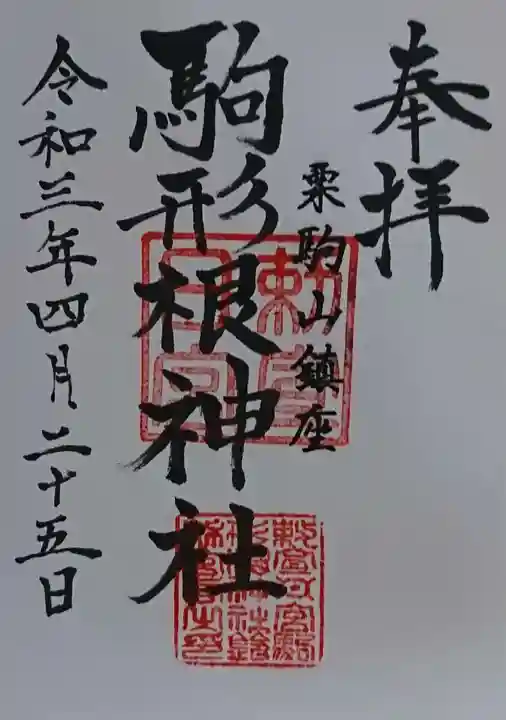 奉拝
栗駒山鎮座
駒形根神社
令和三年四月二十五日